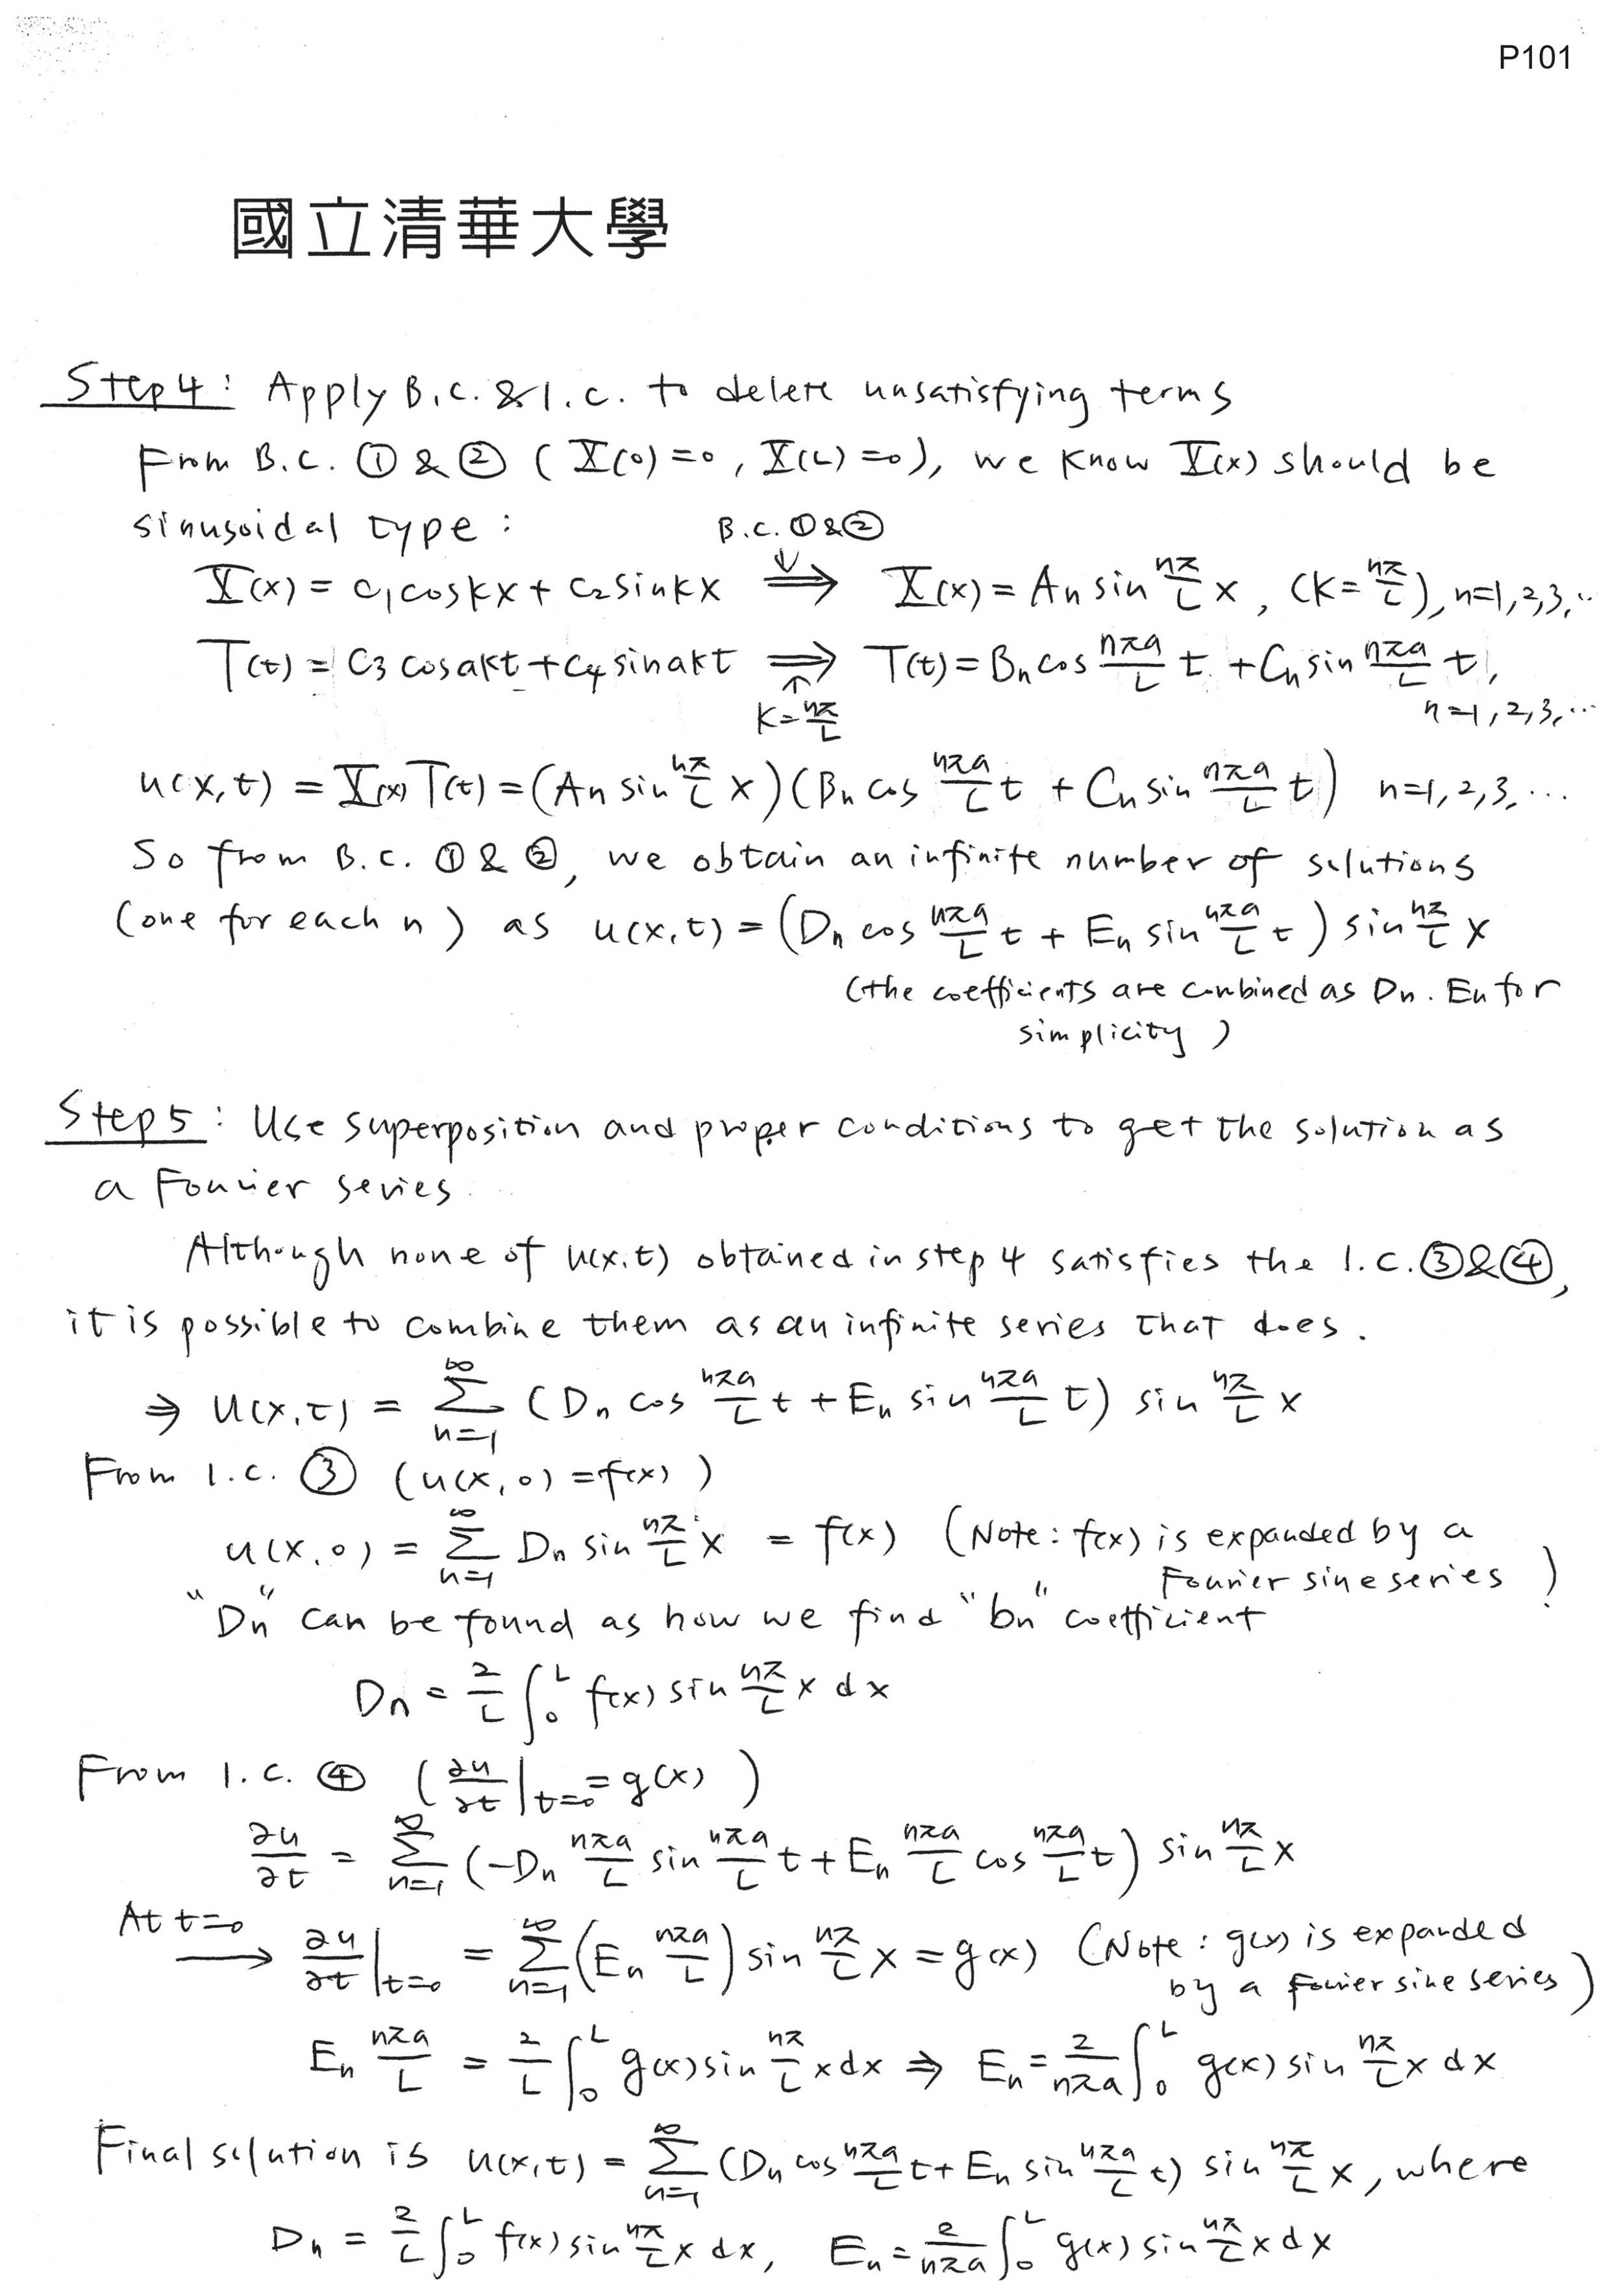 P101
國立清華大學
Step4: Apply B.C. & I.C. to delete unsatisfying terms
From B.C. ① & ② ( X(0)=0, X(L)=0), we know X(x) should be
sinusoidal type:
B.C. ①&②
X(x) = c₁coskx + c₂sinkx ⇒ X(x) = An sin nπ/L x, (k= nπ/L), n=1,2,3,...
T(t) = C3 cosakt + C4 sinakt ⇒ T(t) = Bn cos nπa/L t + Cn sin nπa/L t,
k= nπ/L
n=1,2,3,...
u(x,t) = X(x)T(t) = (An sin nπ/L x)(Bn cos nπa/L t + Cn sin nπa/L t) n=1,2,3,...
So from B.C. ①&②, we obtain an infinite number of solutions
(one for each n) as u(x,t) = (Dn cos nπa/L t + En sin nπa/L t) sin nπ/L x
(the coefficients are combined as Dn. En for
simplicity)
Step5: Use superposition and proper conditions to get the solution as
a Fourier series
Although none of u(x,t) obtained in step 4 satisfies the I.C.③&④,
it is possible to combine them as an infinite series that does.
⇒ u(x,t) = ∑_{n=1}^{∞} (Dn cos nπa/L t + En sin nπa/L t) sin nπ/L x
From I.C. ③ (u(x,0) = f(x))
u(x,0) = ∑_{n=1}^{∞} Dn sin nπ/L x = f(x) (Note: f(x) is expanded by a
Fourier sine series)
"Dn" can be found as how we find "bn" coefficient
Dn = 2/L ∫₀ᴸ f(x) sin nπ/L x dx
From I.C. ④ (∂u/∂t|t=0 = g(x))
∂u/∂t = ∑_{n=1}^{∞} (-Dn nπa/L sin nπa/L t + En nπa/L cos nπa/L t) sin nπ/L x
At t=0
→ ∂u/∂t|t=0 = ∑_{n=1}^{∞} (En nπa/L) sin nπ/L x = g(x) (Note: g(x) is expanded
by a Fourier sine series)
En nπa/L = 2/L ∫₀ᴸ g(x) sin nπ/L x dx ⇒ En = 2/nπa ∫₀ᴸ g(x) sin nπ/L x dx
Final solution is u(x,t) = ∑_{n=1}^{∞} (Dn cos nπa/L t + En sin nπa/L t) sin nπ/L x, where
Dn = 2/L ∫₀ᴸ f(x) sin nπ/L x dx, En = 2/nπa ∫₀ᴸ g(x) sin nπ/L x dx